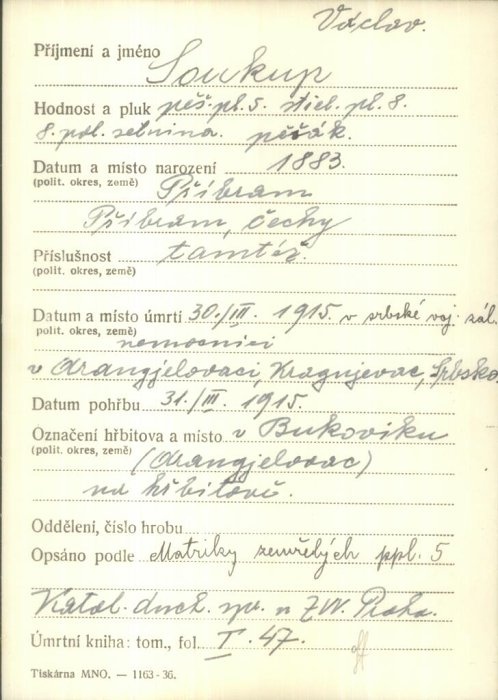 Václav.
Příjmení a jméno Soukup
Hodnost a pluk pěš. pl. 5. střel. pl. 8.
8. pol. setnina. pěšák.
Datum a místo narození 1883.
(polit. okres, země) Příbram
Příbram, Čechy
Příslušnost tamtéž.
(polit. okres, země)
Datum a místo úmrtí 30./III. 1915. v srbské voj. zál.
polit. okres, země)
nemocnici
v Arangjelovaci, Kragujevac, Srbsko
Datum pohřbu 31./III. 1915.
Označení hřbitova a místo v Bukoviku
(polit. okres, země) (Arangjelovac)
na hřbitově.
Oddělení, číslo hrobu
Opsáno podle Matriky zemřelých ppl. 5
Katol. duch. spr. u ZVV. Praha.
Úmrtní kniha: tom., fol. I. 47.
Tiskárna MNO. — 1163-36.